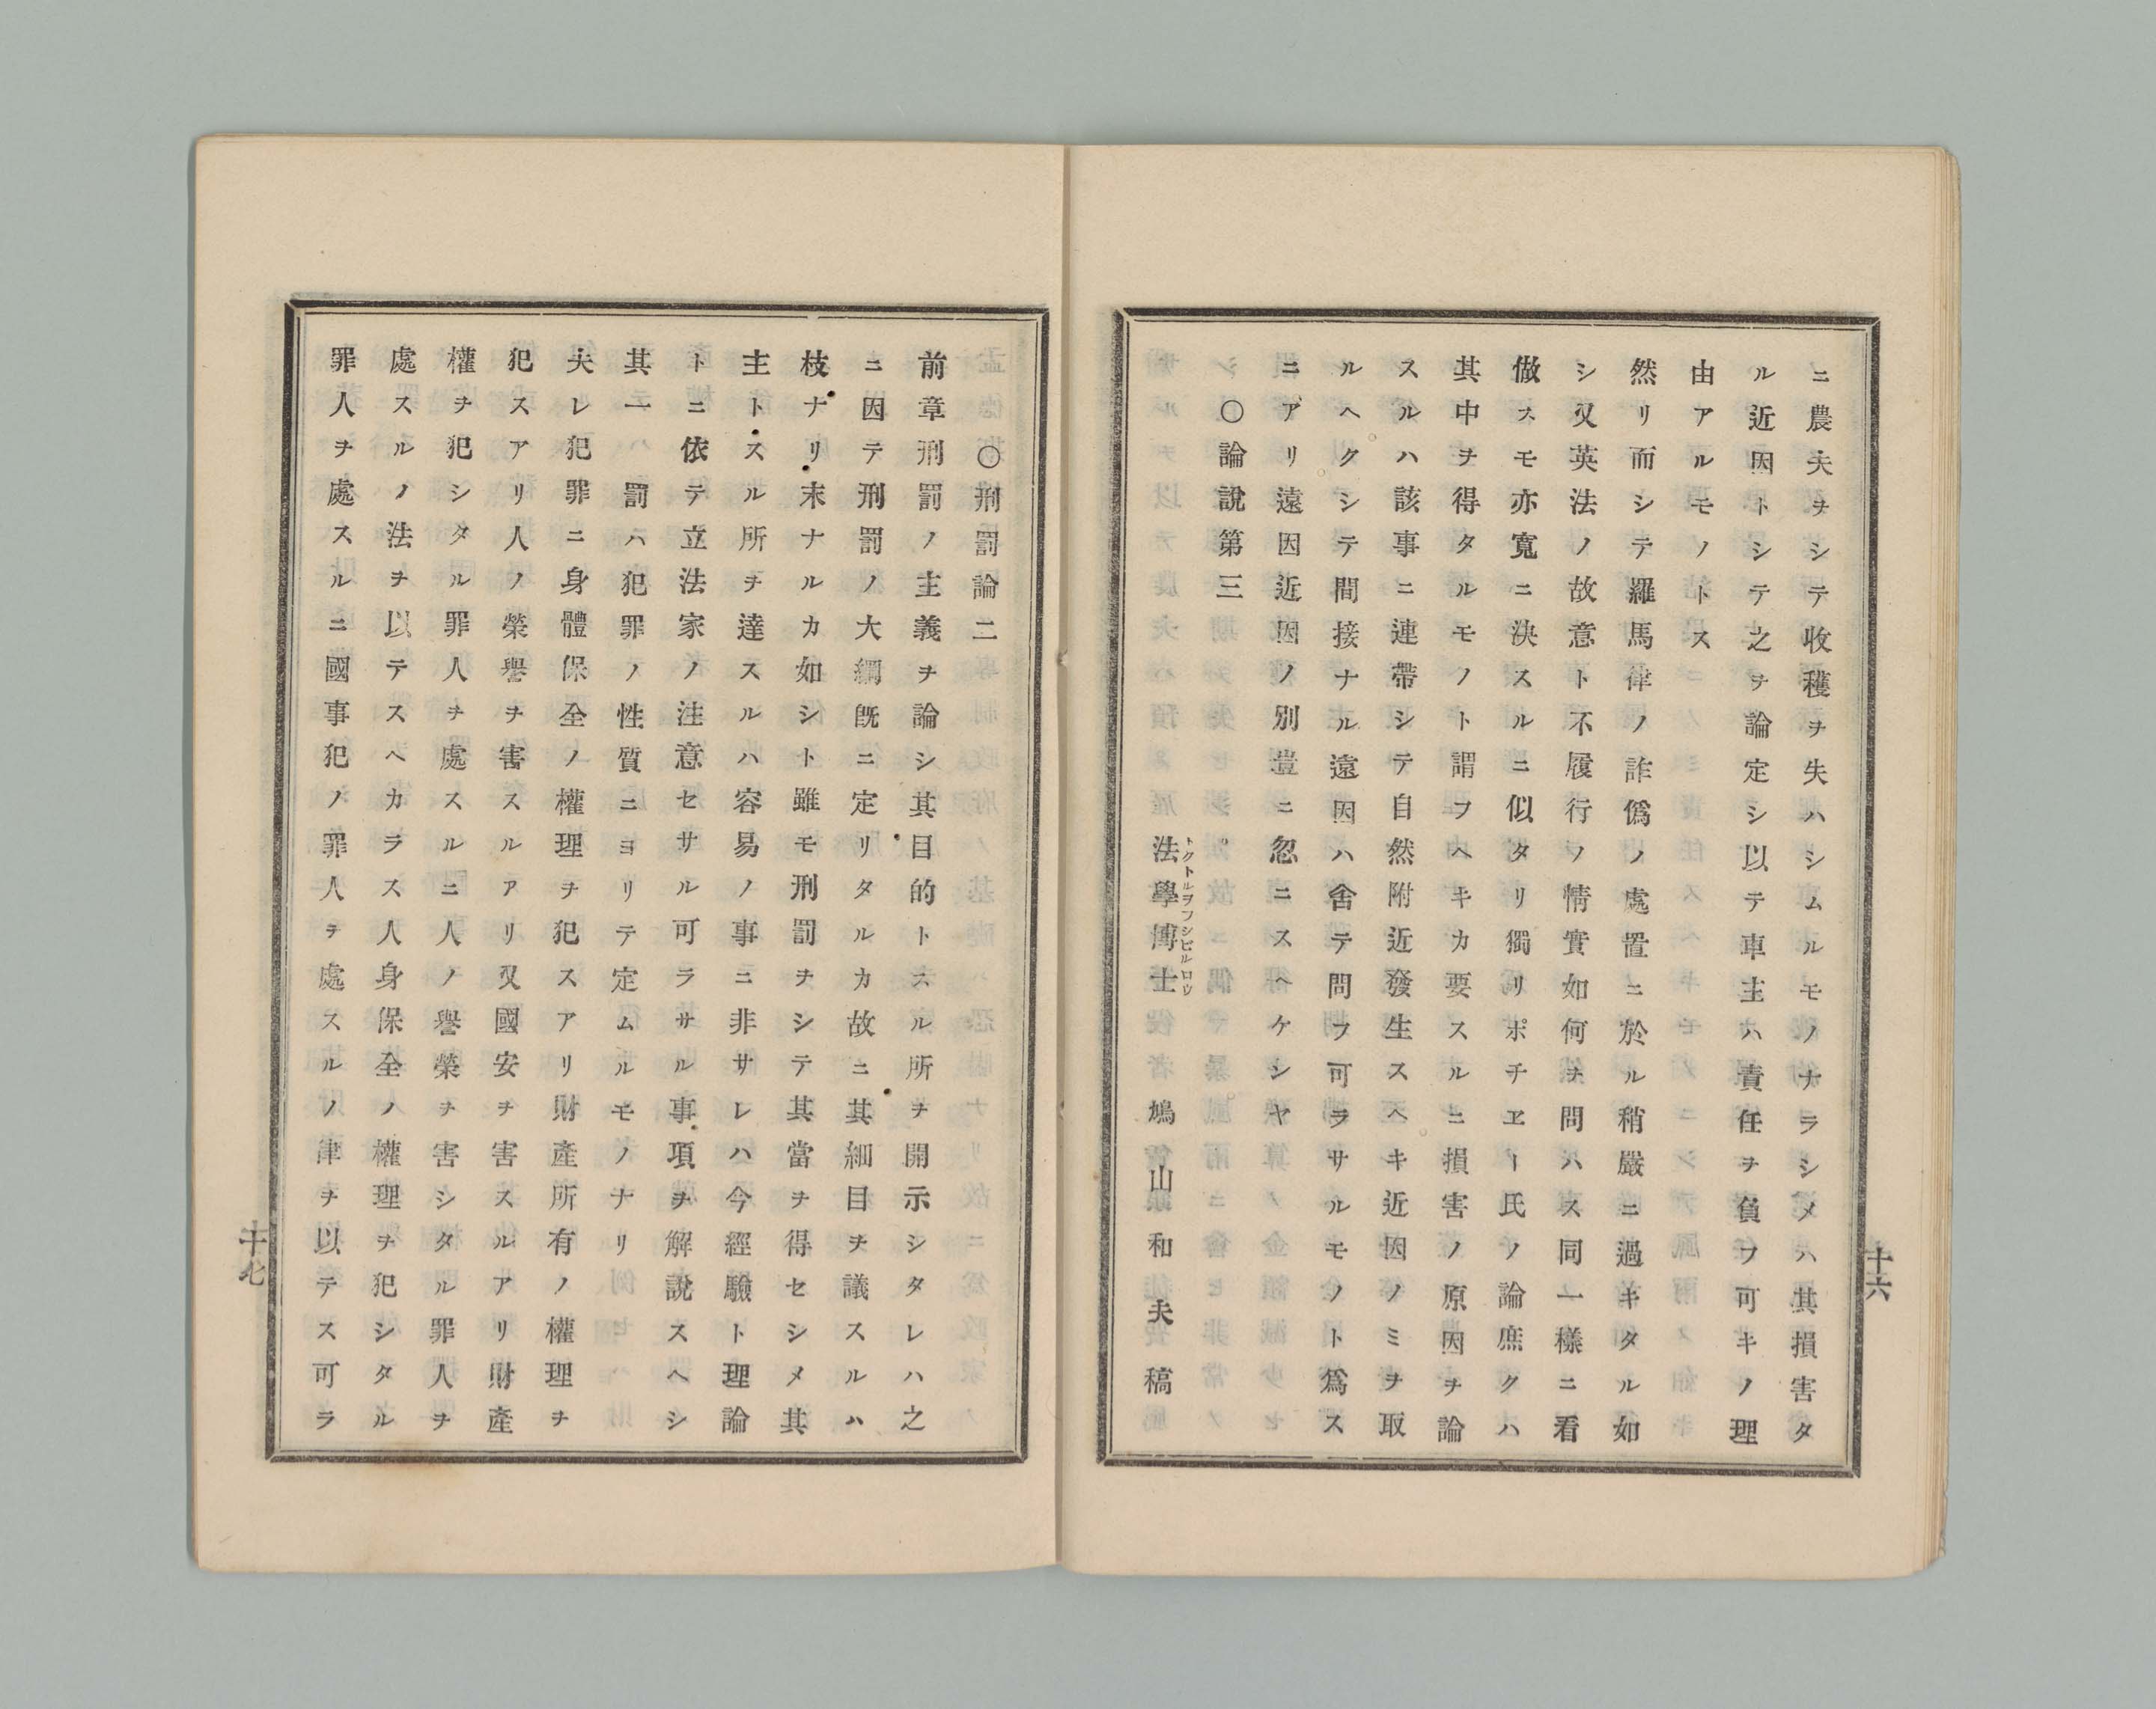 ニ農夫ヲシテ收穫ヲ失ハシムルモノナラシメハ其損害タ
ル近因トシテ之ヲ論定シ以テ車主ハ責任ヲ負フ可キノ理
由アルモノトス
然リ而シテ羅馬律ノ詐僞ノ處置ニ於ル稍嚴ニ過キタル如
シ又英法ノ故意ト不履行ノ情實如何ヲ問ハス同一樣ニ看
做スモ亦寬ニ決スルニ似タリ獨リポチエー氏ノ論庶クハ
其中ヲ得タルモノト謂フヘキカ要スルニ損害ノ原因ヲ論
スルハ該事ニ連帶シテ自然附近發生スヘキ近因ノミヲ取
ルヘクシテ間接ナル遠因ハ舍テ問フ可ラサルモノト爲ス
ニアリ遠因近因ノ別豈ニ忽ニスヘケンヤ
〇論說第三
法學博士 鳩山和夫稿
ドクトルヲフシビルロウ
十六
〇刑罰論二
前章刑罰ノ主義ヲ論シ其目的トスル所ヲ開示シタレハ之
ニ因テ刑罰ノ大綱既ニ定リタルカ故ニ其細目ヲ議スルハ
枝ナリ末ナルカ如シト雖モ刑罰ヲシテ其當ヲ得セシメ其
主トスル所ヲ達スルハ容易ノ事ニ非サレハ今經驗ト理論
トニ依テ立法家ノ注意セサル可ラサル事項ヲ解說スヘシ
其一ハ罰ハ犯罪ノ性質ニヨリテ定ムルモノナリ
夫レ犯罪ニ身體保全ノ權理ヲ犯スアリ財產所有ノ權理ヲ
犯スアリ人ノ榮譽ヲ害スルアリ又國安ヲ害スルアリ財產
權ヲ犯シタル罪人ヲ處スルニ人ノ譽榮ヲ害シタル罪人ヲ
處スルノ法ヲ以テスヘカラス人身保全ノ權理ヲ犯シタル
罪人ヲ處スルニ國事犯ノ罪人ヲ處スルノ律ヲ以テス可ラ
十七